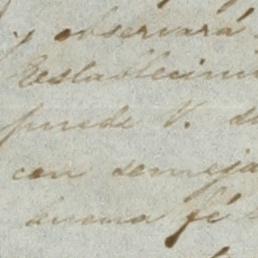 y observará
Establecimi
puede V. d
con semeja
buena fé